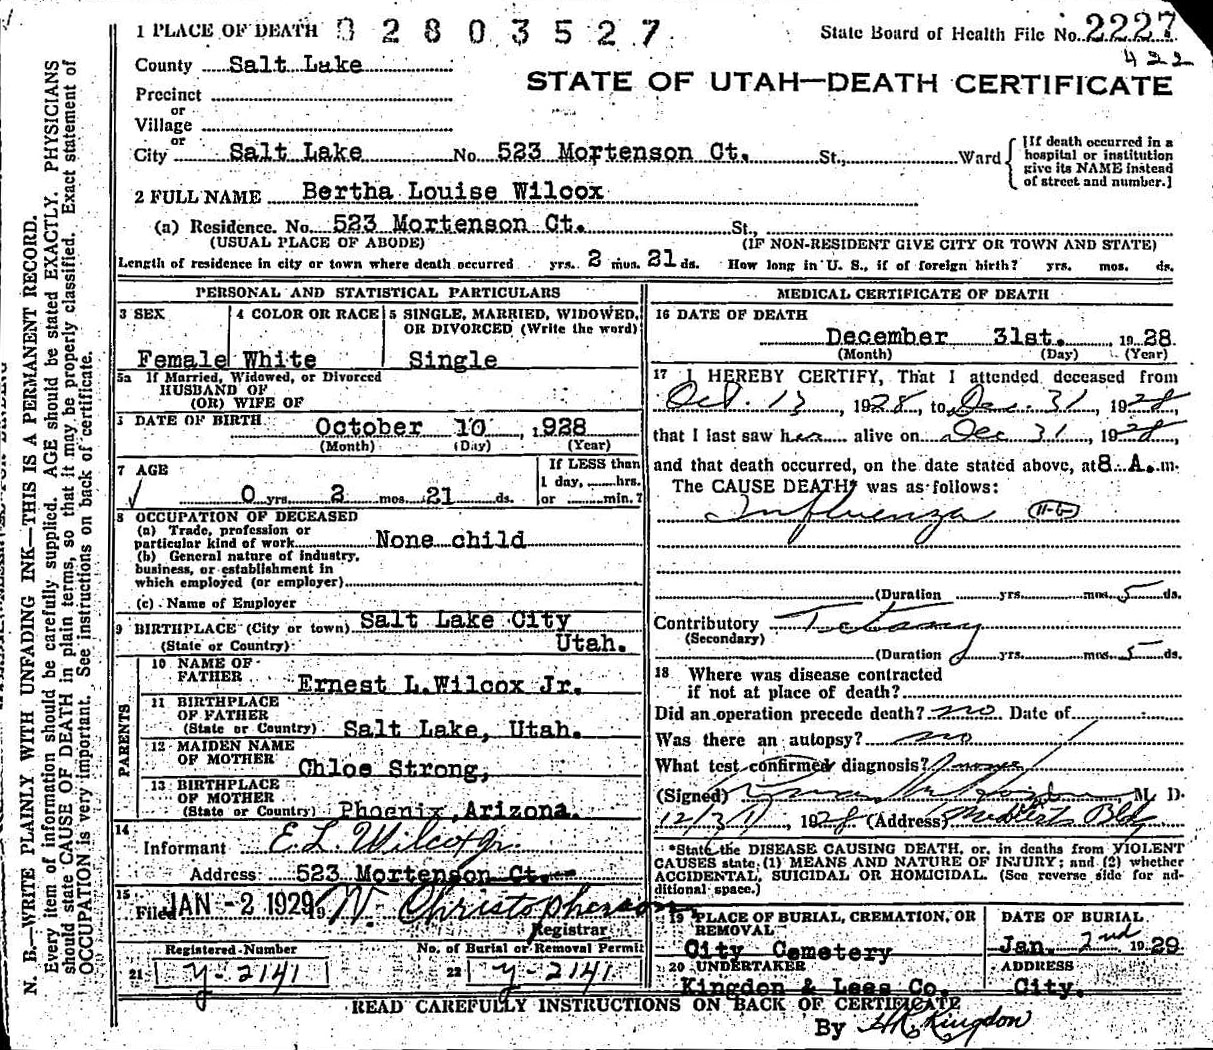 1 PLACE OF DEATH 2803527 State Board of Health File No. 2227
422
County Salt Lake
STATE OF UTAH—DEATH CERTIFICATE
Precinct
or
Village
or
City Salt Lake No. 523 Mortenson Ct. St., Ward
[If death occurred in a hospital or institution give its NAME instead of street and number.]
2 FULL NAME Bertha Louise Wilcox
(a) Residence. No. 523 Mortenson Ct. St.,
(USUAL PLACE OF ABODE) (IF NON-RESIDENT GIVE CITY OR TOWN AND STATE)
Length of residence in city or town where death occurred yrs. 2 mos. 21 ds. How long in U. S., if of foreign birth? yrs. mos. ds.
PERSONAL AND STATISTICAL PARTICULARS
3 SEX
Female
4 COLOR OR RACE
White
5 SINGLE, MARRIED, WIDOWED, OR DIVORCED (Write the word)
Single
5a If Married, Widowed, or Divorced
HUSBAND OF
(OR) WIFE OF
DATE OF BIRTH October 10, 1928
(Month) (Day) (Year)
7 AGE
0 yrs. 2 mos. 21 ds.
If LESS than
1 day, hrs.
or min.?
8 OCCUPATION OF DECEASED
(a) Trade, profession or
particular kind of work None child
(b) General nature of industry,
business, or establishment in
which employed (or employer)
(c) Name of Employer
9 BIRTHPLACE (City or town) Salt Lake City
(State or Country) Utah.
PARENTS
10 NAME OF
FATHER Ernest L. Wilcox Jr.
11 BIRTHPLACE
OF FATHER
(State or Country) Salt Lake, Utah.
12 MAIDEN NAME
OF MOTHER Chloe Strong,
13 BIRTHPLACE
OF MOTHER
(State or Country) Phoenix, Arizona.
14
Informant E. L. Wilcox Jr.
Address 523 Mortenson Ct.
15
Filed JAN -2 1929 W. Christopherson
Registrar
Registered Number No. of Burial or Removal Permit
21 Y-2141 22 Y-2141
MEDICAL CERTIFICATE OF DEATH
16 DATE OF DEATH
December 31st. 1928.
(Month) (Day) (Year)
17 I HEREBY CERTIFY, That I attended deceased from
Oct. 13, 1928, to Dec. 31, 1928,
that I last saw her alive on Dec 31, 1928,
and that death occurred, on the date stated above, at 8 A. m.
The CAUSE DEATH* was as follows:
Influenza 11-G
(Duration yrs. mos. 5 ds.
Contributory Tetany
(Secondary)
(Duration yrs. mos. 5 ds.
18 Where was disease contracted
if not at place of death?
Did an operation precede death? no Date of
Was there an autopsy? no
What test confirmed diagnosis?
(Signed) M. D.
12/31, 1928 (Address) Bldg
*State the DISEASE CAUSING DEATH, or, in deaths from VIOLENT
CAUSES state (1) MEANS AND NATURE OF INJURY; and (2) whether
ACCIDENTAL, SUICIDAL OR HOMICIDAL. (See reverse side for ad-
ditional space.)
19 PLACE OF BURIAL, CREMATION, OR
REMOVAL
City Cemetery
DATE OF BURIAL
Jan. 2nd 1929
20 UNDERTAKER
Kingdon & Lees Co.
ADDRESS
City.
READ CAREFULLY INSTRUCTIONS ON BACK OF CERTIFICATE
By H R Kingdon
N. B.—WRITE PLAINLY WITH UNFADING INK—THIS IS A PERMANENT RECORD.
Every item of information should be carefully supplied. AGE should be stated EXACTLY. PHYSICIANS
should state CAUSE OF DEATH in plain terms, so that it may be properly classified. Exact statement of
OCCUPATION is very important. See instructions on back of certificate.